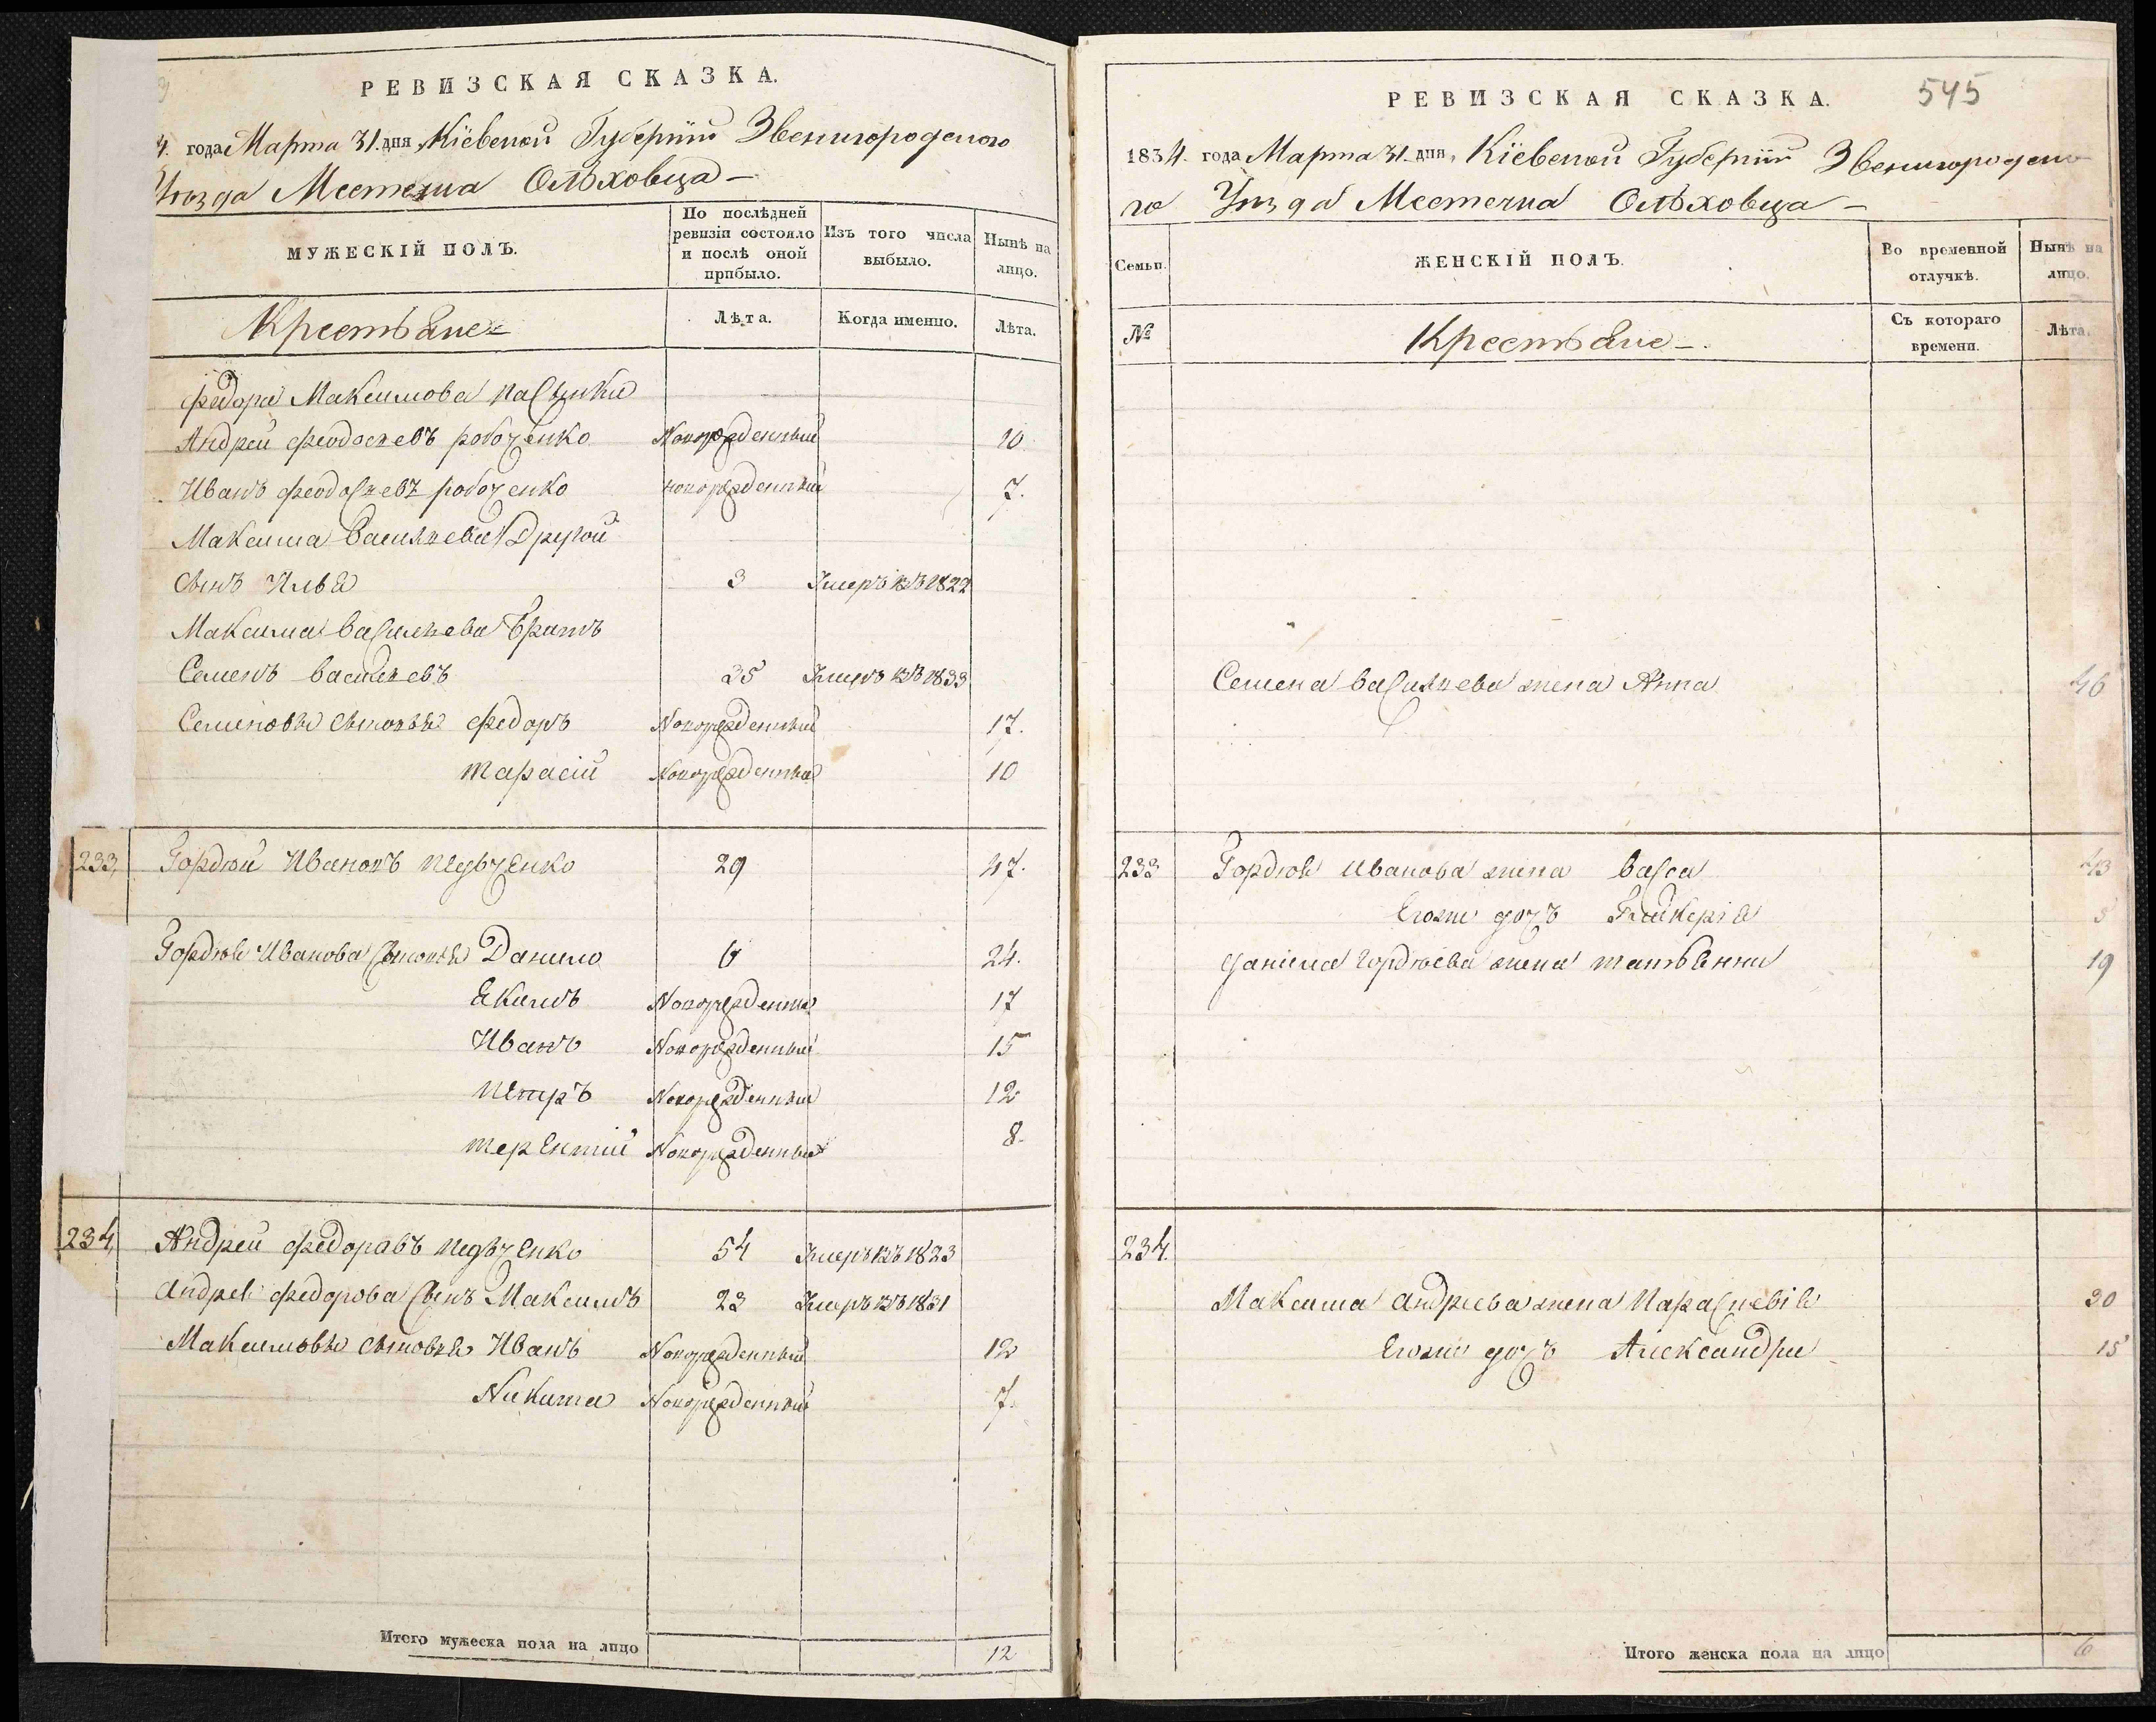 РЕВИЗСКАЯ СКАЗКА.
4. года Марта 31. дня, Кіевской Губерніи Звенигородского
Уѣзда Местечка Ольховца
МУЖЕСКІЙ ПОЛЪ.
По послѣдней ревизіи состояло и послѣ оной прибыло.
Изъ того числа выбыло.
Нынѣ на лицо.
Крестьяне
Лѣта.
Когда именно.
Лѣта.
Федора Максимова пасынки
Андрей Феодосѣевъ робоченко Новорожденный 10
Иванъ Феодосѣевъ робоченко новорожденный 7.
Максима Васильева Другой
сынъ Илья 3 Умеръ въ 1822
Максима васильева братъ
Семенъ васильевъ 35 Умеръ въ 1833
Семеновы сыновья Федоръ Новорожденный 17.
тарасій Новорожденный 10
233 Гордѣй Ивановъ педьченко 29 47.
Гордѣя Иванова сыновья Данило 6 24.
Екимъ Новорожденный 17
Иванъ Новорожденный 15
петръ Новорожденный 12
терентій Новорожденный 8.
234 Андрей Федоравъ педьченко 54 Умеръ въ 1823
андрея Федорова сынъ Максимъ 23 Умеръ въ 1831
Максимовы сыновья Иванъ Новорожденный 12
Никита Новорожденный 7.
Итого мужеска пола на лицо 12
РЕВИЗСКАЯ СКАЗКА. 545
1834. года Марта 31. дня, Кіевской Губерніи Звенигородско
го Уѣзда Местечка Ольховца
Семьи.
ЖЕНСКІЙ ПОЛЪ.
Во временной отлучкѣ.
Нынѣ на лицо.
№
Крестьяне
Съ котораго времени.
Лѣта.
Семена васильева жена Анна 46
233 Гордѣя иванова жена васса 43
Егоже дочь Гликерія 5
даніила гордѣева жена татьянна 19
234.
Максима андреева жена Параскевія 30
Егоже дочь Александра 15
Итого женска пола на лицо 6